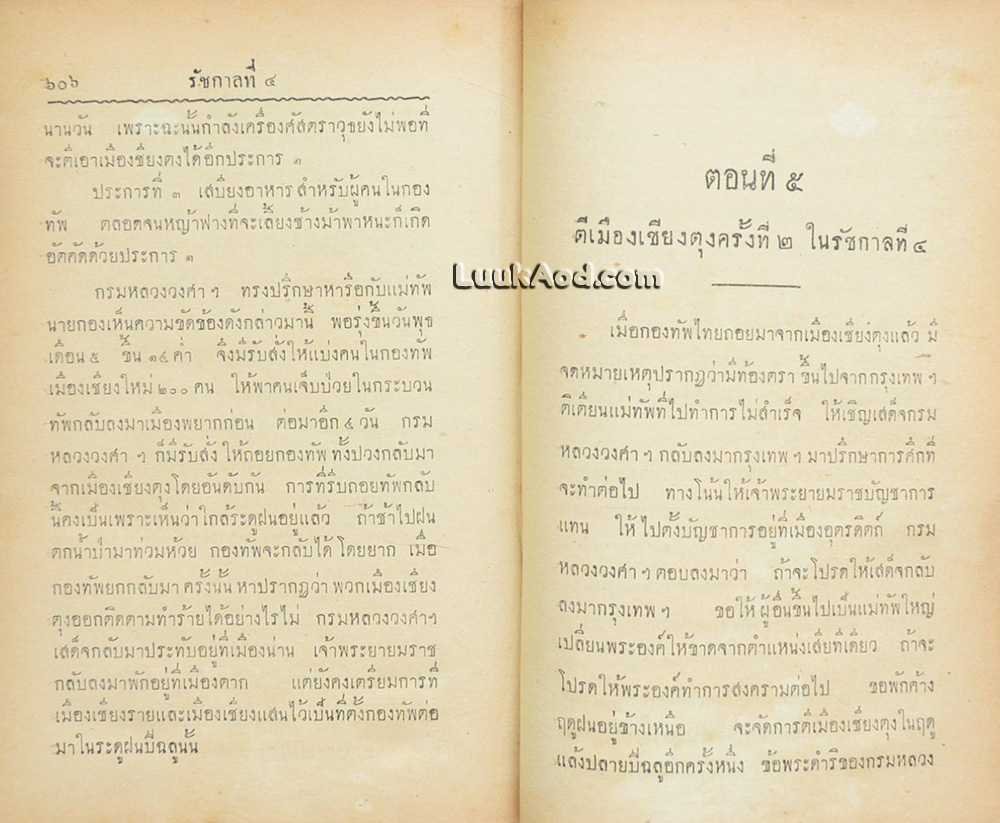 ๖๐๖ รัชกาลที่ ๔
นานวัน เพราะฉะนั้นกำลังเครื่องศัสตราวุธยังไม่พอที่
จะตีเอาเมืองเชียงตุงได้อีกประการ ๑
ประการที่ ๓ เสบียงอาหารสำหรับผู้คนในกอง
ทัพ ตลอดจนหญ้าฟางที่จะเลี้ยงช้างม้าพาหนะก็เกิด
อัตคัดด้วยประการ ๑
กรมหลวงวงศา ฯ ทรงปรึกษาหารือกับแม่ทัพ
นายกองเห็นความขัดข้องดังกล่าวมานี้ พอรุ่งขึ้นวันพุธ
เดือน ๕ ขึ้น ๑๔ ค่ำ จึงมีรับสั่งให้แบ่งคนในกองทัพ
เมืองเชียงใหม่ ๒๐๐ คน ให้พาคนเจ็บป่วยในกระบวน
ทัพกลับลงมาเมืองพยากก่อน ต่อมาอีก ๔ วัน กรม
หลวงวงศา ฯ ก็มีรับสั่ง ให้ถอยกองทัพ ทั้งปวงกลับมา
จากเมืองเชียงตุงโดยอันดับกัน การที่รีบถอยทัพกลับ
นี้คงเป็นเพราะเห็นว่าใกล้ระดูฝนอยู่แล้ว ถ้าช้าไปฝน
ตกน้ำป่ามาท่วมห้วย กองทัพจะกลับได้โดยยาก เมื่อ
กองทัพยกกลับมา ครั้งนั้น หาปรากฏว่า พวกเมืองเชียง
ตุงออกติดตามทำร้ายได้อย่างไรไม่ กรมหลวงวงศาฯ
เสด็จกลับมาประทับอยู่ที่เมืองน่าน เจ้าพระยายมราช
กลับลงมาพักอยู่ที่เมืองตาก แต่ยังคงเตรียมการที่
เมืองเชียงรายและเมืองเชียงแสนไว้เป็นที่ตั้งกองทัพต่อ
มาในระดูฝนปีฉลูนั้น
ตอนที่ ๕
ตีเมืองเชียงตุงครั้งที่ ๒ ในรัชกาลที่ ๔
LuukAod.com
เมื่อกองทัพไทยถอยมาจากเมืองเชียงตุงแล้ว มี
จดหมายเหตุปรากฏว่ามีท้องตรา ขึ้นไปจากกรุงเทพ ฯ
ติเตียนแม่ทัพที่ไปทำการไม่สำเร็จ ให้เชิญเสด็จกรม
หลวงวงศา ฯ กลับลงมากรุงเทพ ฯ มาปรึกษาการศึกที่
จะทำต่อไป ทางโน้นให้เจ้าพระยายมราชบัญชาการ
แทน ให้ไปตั้งบัญชาการอยู่ที่เมืองอุตรดิตถ์ กรม
หลวงวงศา ฯ ตอบลงมาว่า ถ้าจะโปรดให้เสด็จกลับ
ลงมากรุงเทพ ฯ ขอให้ ผู้อื่นขึ้นไปเป็นแม่ทัพใหญ่
เปลี่ยนพระองค์ ให้ขาดจากตำแหน่งเสียทีเดียว ถ้าจะ
โปรดให้พระองค์ทำการสงครามต่อไป ขอพักค้าง
ฤดูฝนอยู่ข้างเหนือ จะจัดการตีเมืองเชียงตุงในฤดู
แล้งปลายปีฉลูอีกครั้งหนึ่ง ข้อพระดำริของกรมหลวง